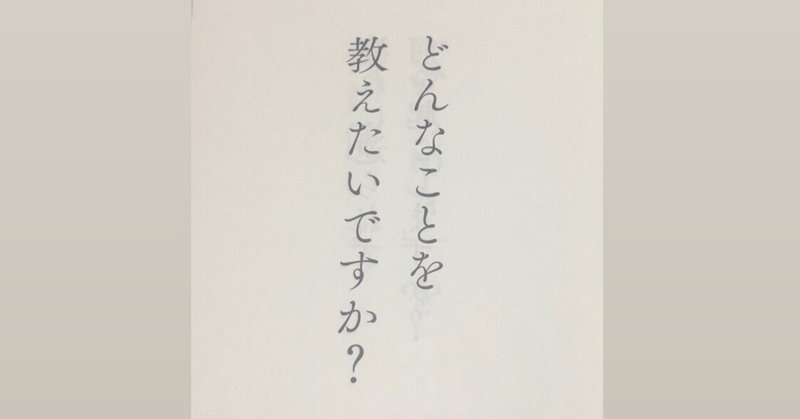 どんなことを
教えたいですか？